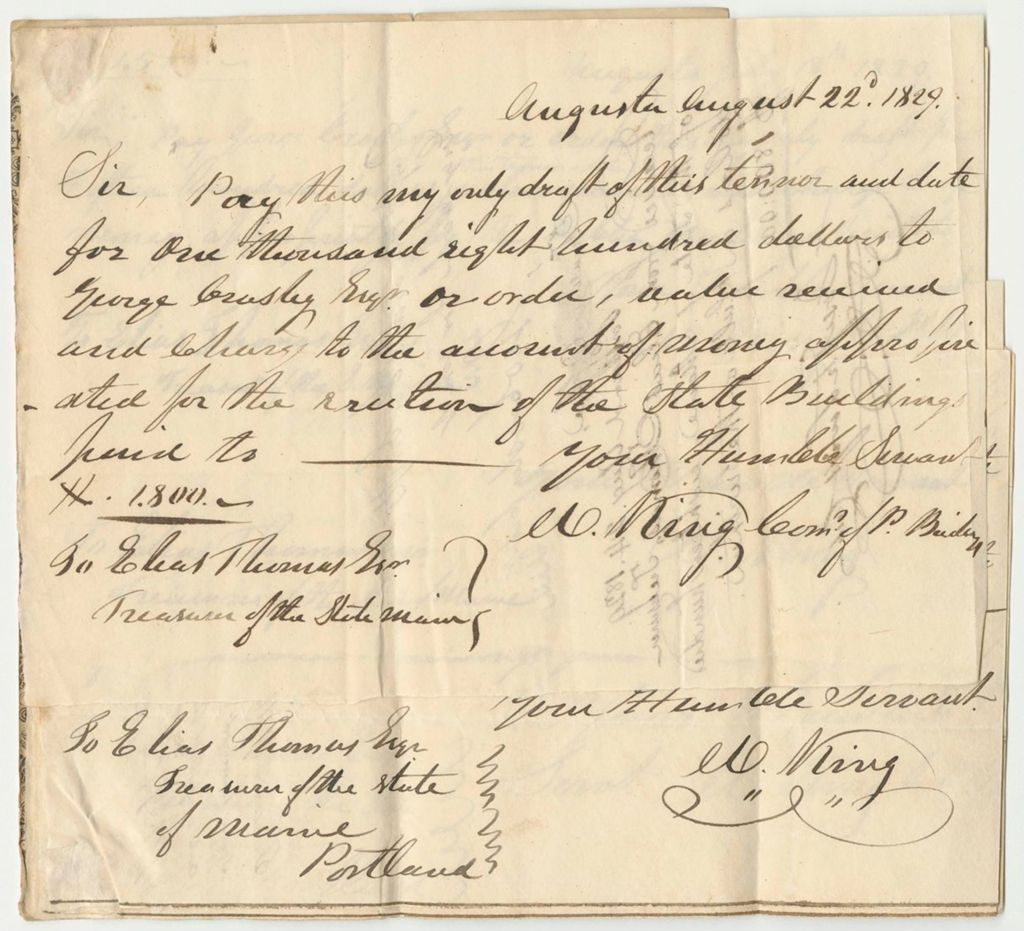 Augusta August 22d. 1829.
Sir, Pay this my only draft of this tennor and date
for One thousand eight hundred dollars to
George Crosby Esqr. or order, value received
and Charge to the account of money appropri
-ated for the erection of the State Buildings
paid to ———— Your Humble Servant
$. 1.800. –
W. King Comr. of P. Buildings
To Elias Thomas Esqr.
Treasurer of the State Maine
Your Humble Servant.
W. King
To Elias Thomas Esqr
Treasurer of the State
of Maine
Portland